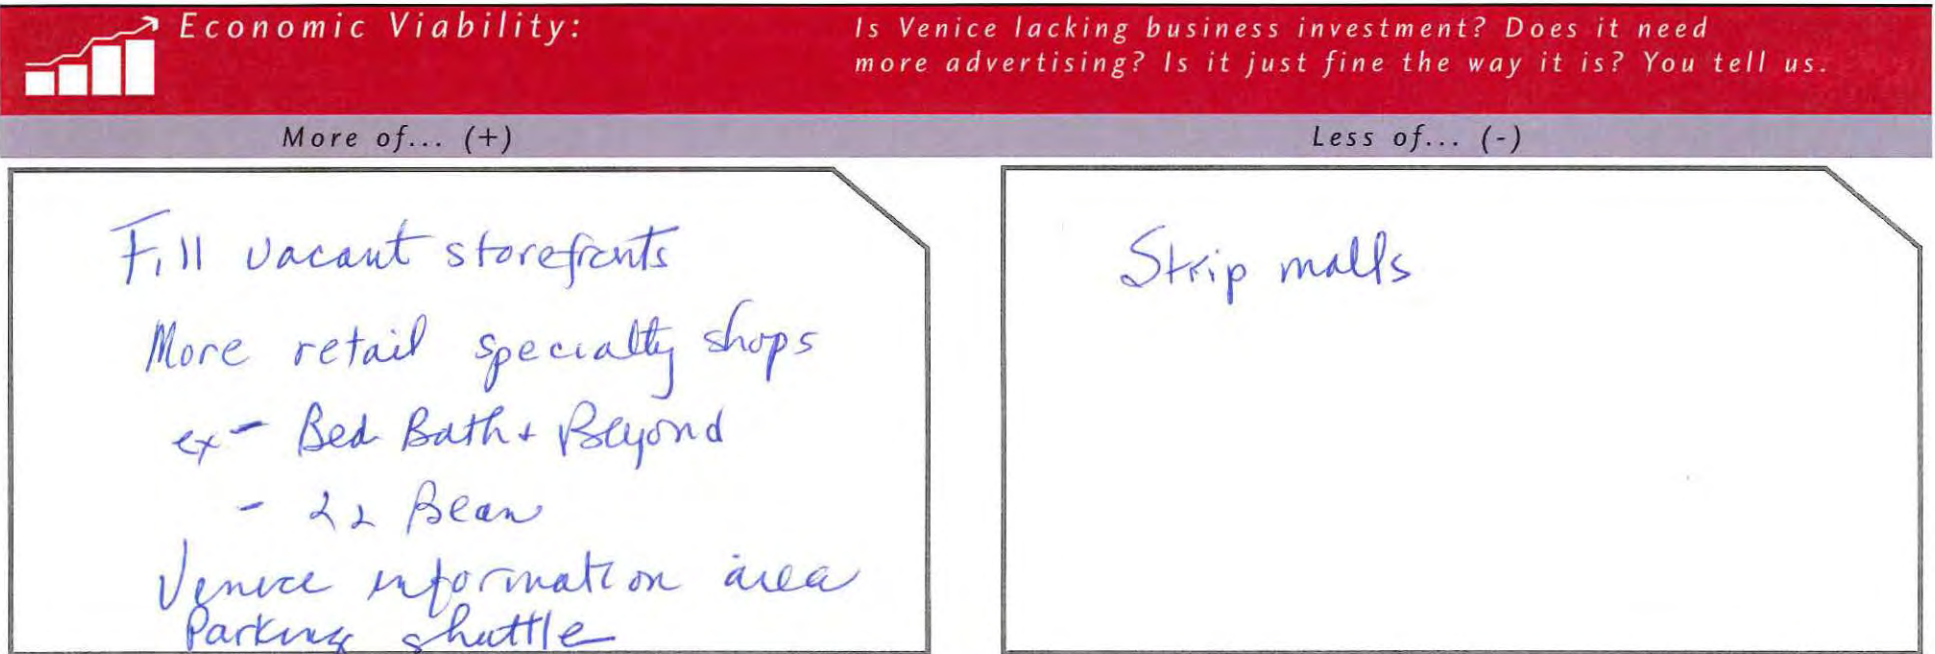 Economic Viability:
Is Venice lacking business investment? Does it need
more advertising? Is it just fine the way it is? You tell us.
More of... (+)
Less of... (-)
Fill vacant storefronts
More retail specialty shops
ex - Bed Bath + Beyond
- LL Bean
Venice information area
Parking shuttle
Strip malls